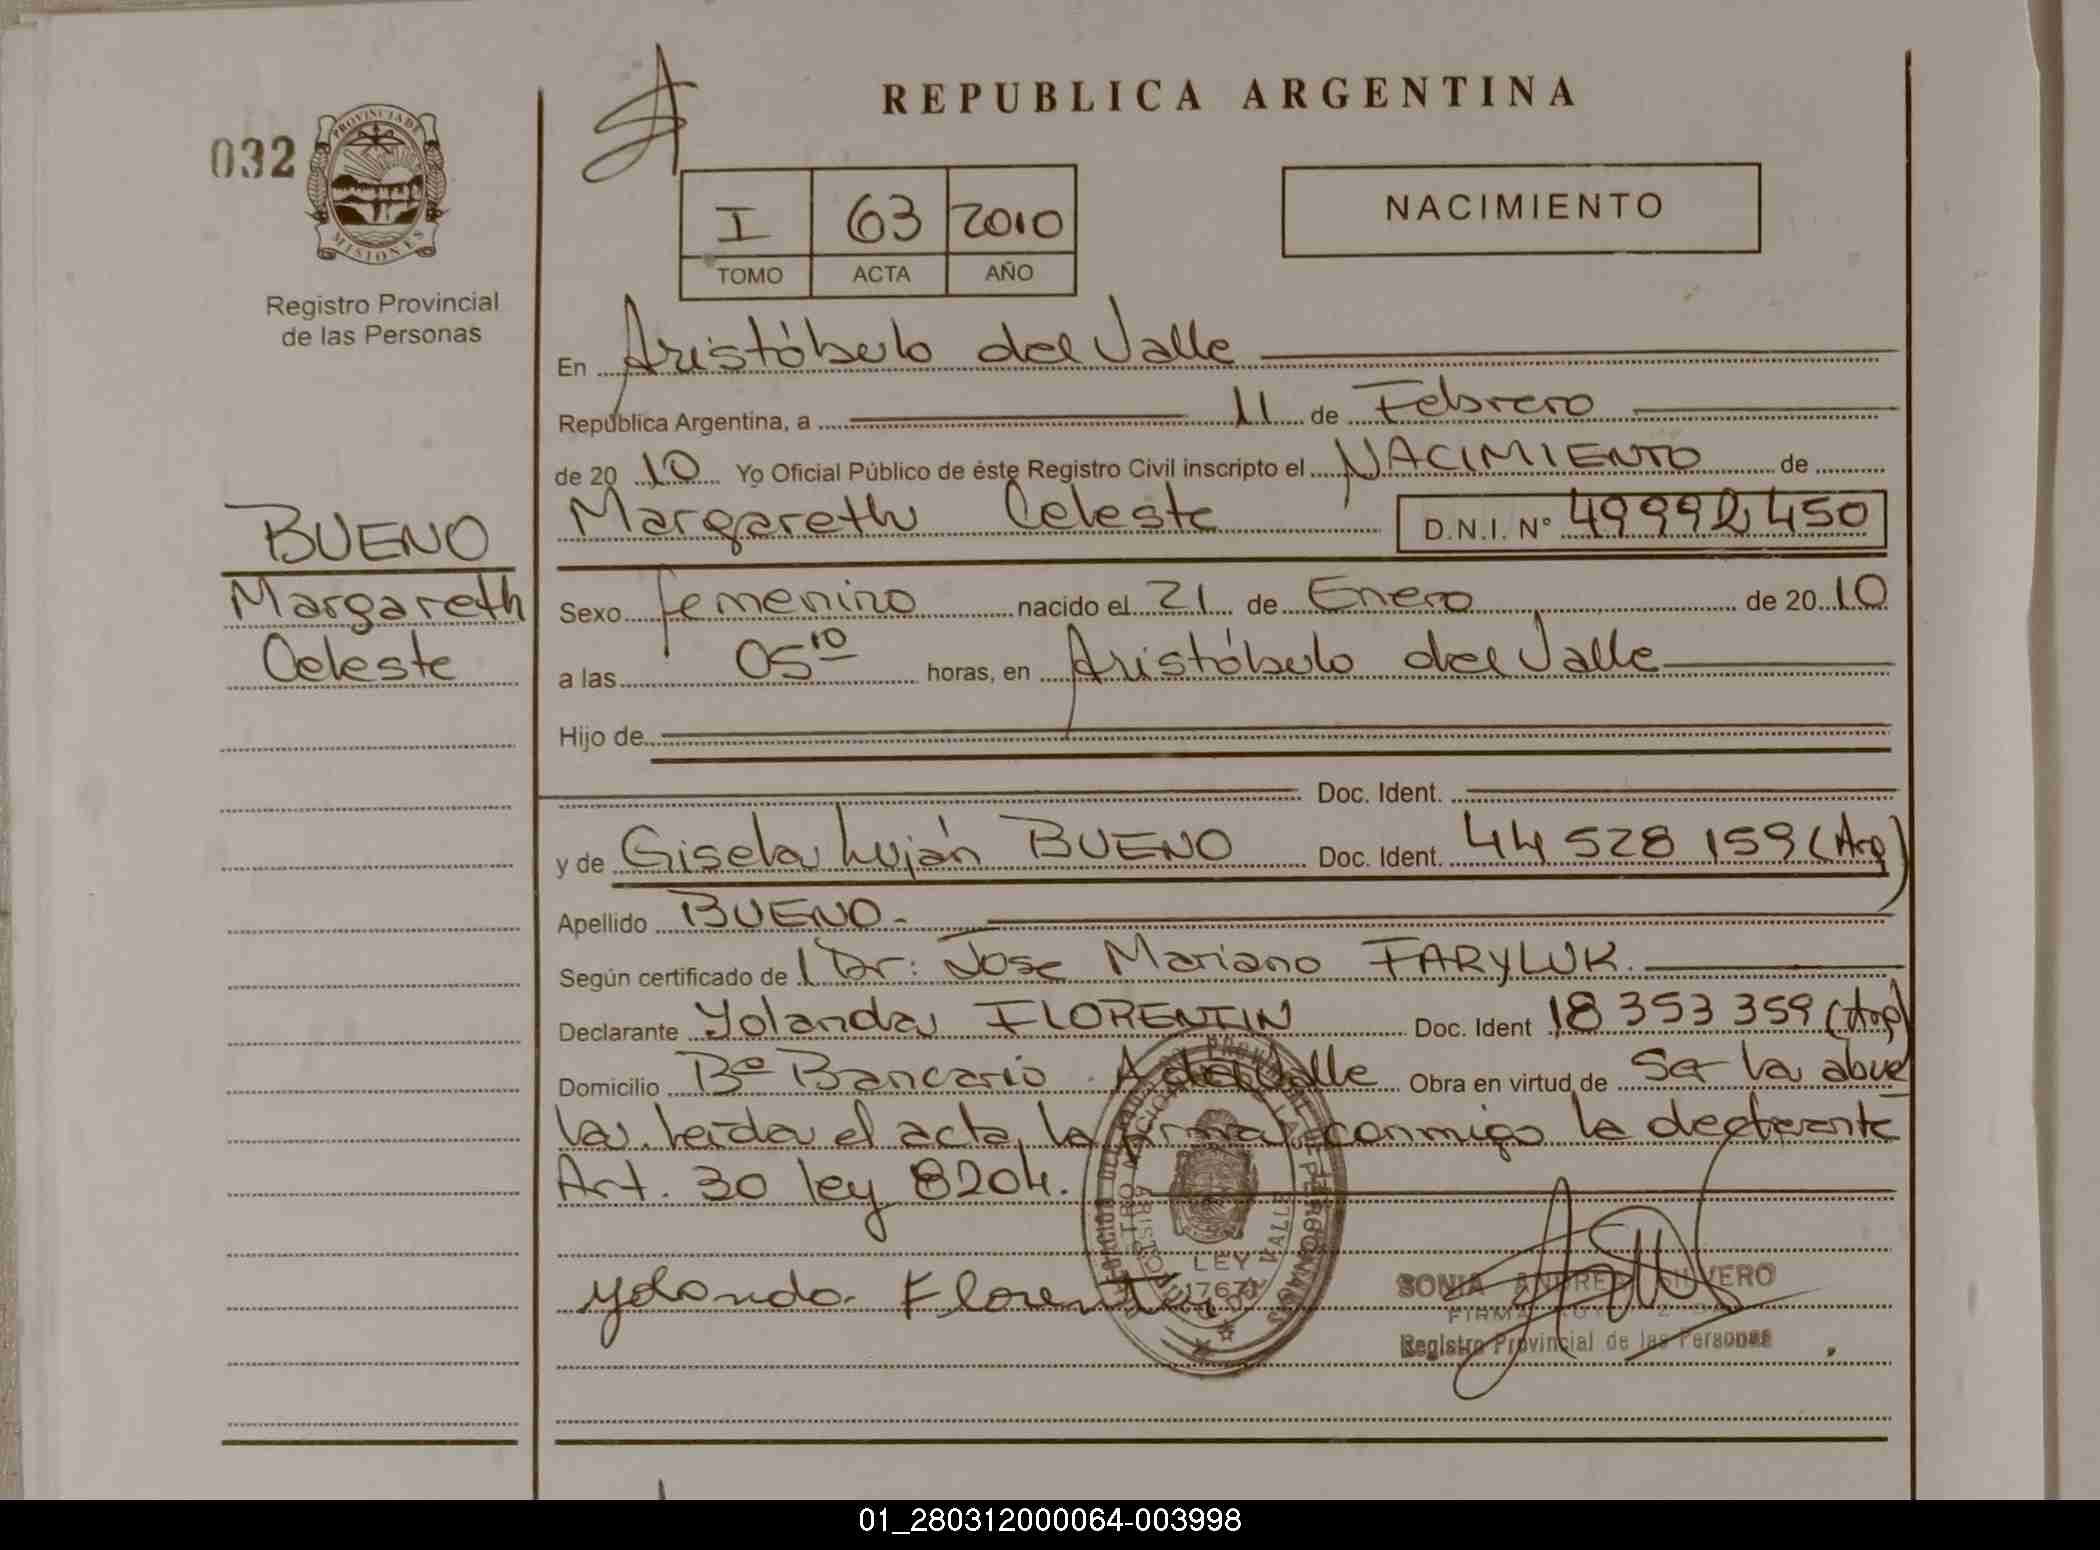 REPUBLICA ARGENTINA
032
PROVINCIA DE
MISIONES
Registro Provincial
de las Personas
I 63 2010
TOMO ACTA AÑO
NACIMIENTO
En Aristóbulo del Valle
República Argentina, a 11 de Febrero
de 20 10 Yo Oficial Público de éste Registro Civil inscripto el NACIMIENTO de
Margareth Celeste D.N.I. Nº 49992450
BUENO
Margareth
Celeste
Sexo femenino nacido el 21 de Enero de 20 10
a las 05 10 horas, en Aristóbulo del Valle
Hijo de
Doc. Ident.
y de Gisela Luján BUENO Doc. Ident. 44 528 159 (Arg)
Apellido BUENO-
Según certificado de l Dr: Jose Mariano FARYLUK.
Declarante Yolanda FLORENTIN Doc. Ident 18 353 359 (Arg)
Domicilio Bº Bancario A del Valle Obra en virtud de ser la abue
la. Leida el acta, la firma conmigo la declarante
Art. 30 ley 8204.
Yolanda Florentin
LEY
17671
SONIA ANDREA SILVERO
FIRMA AUTORIZADA
Registro Provincial de las Personas
01_280312000064-003998